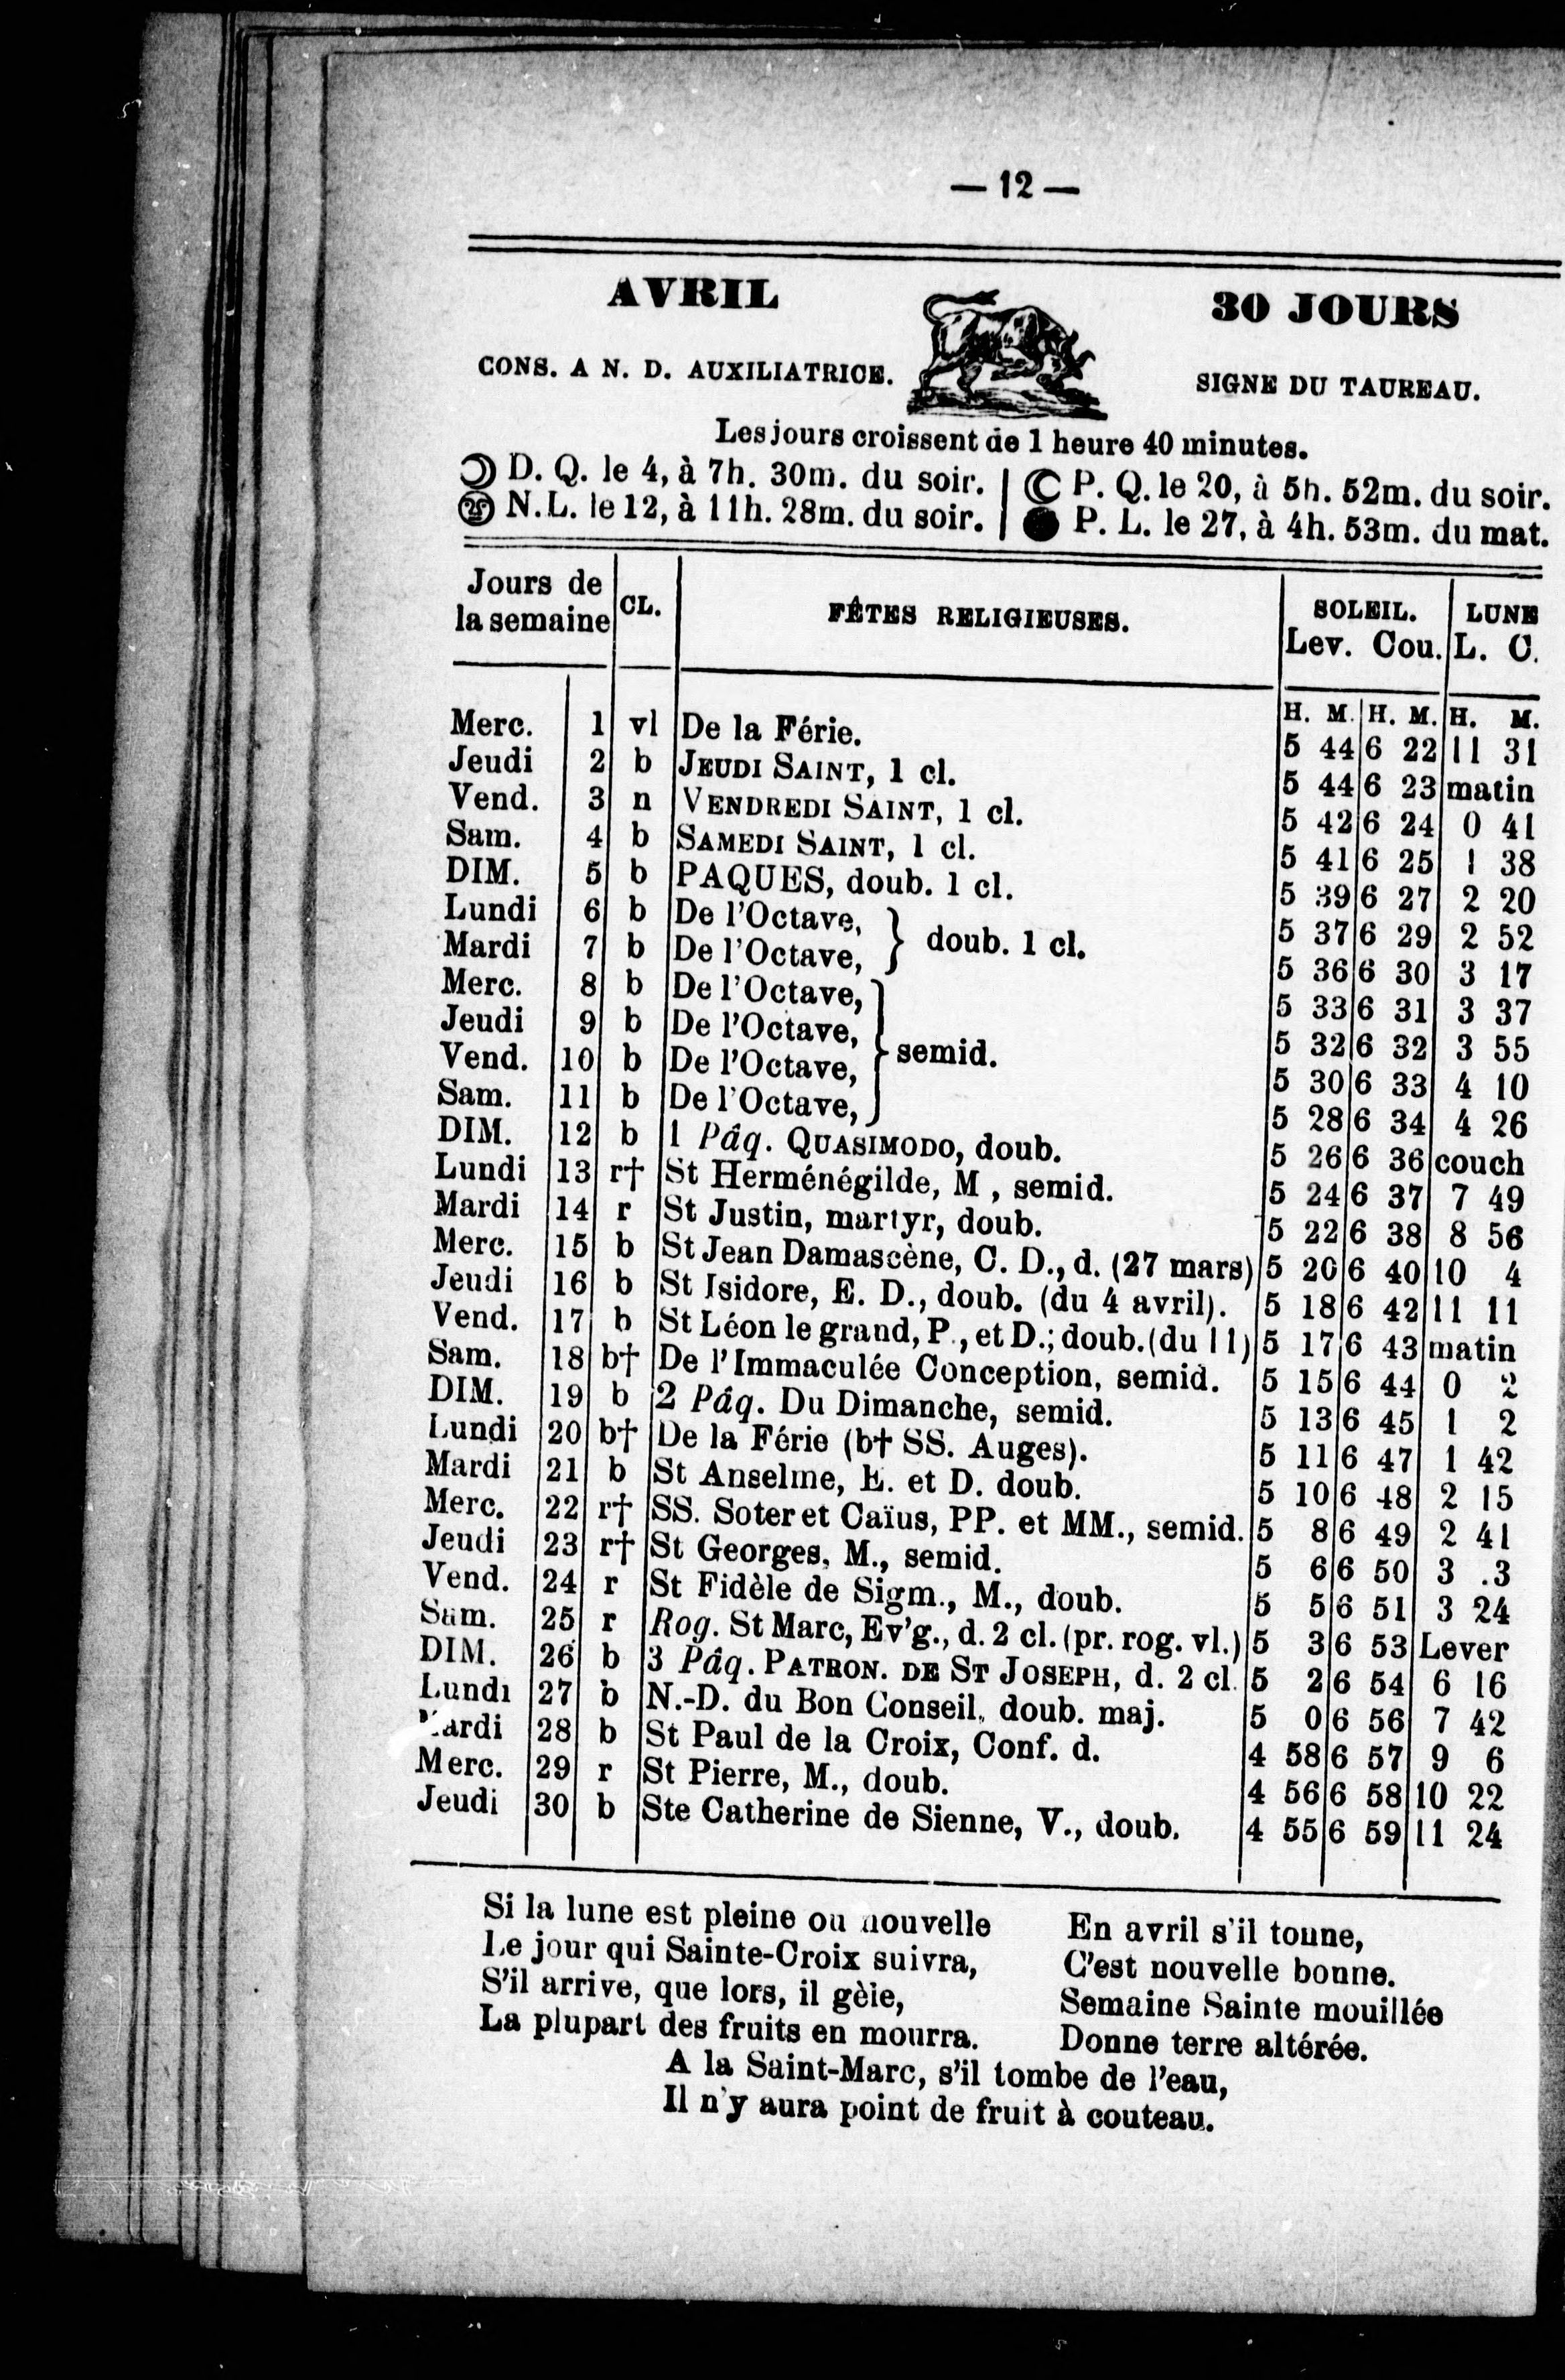 — 12 —
AVRIL 30 JOURS
CONS. A N. D. AUXILIATRICE. SIGNE DU TAUREAU.
Les jours croissent de 1 heure 40 minutes.
D. Q. le 4, à 7h. 30m. du soir. P. Q. le 20, à 5h. 52m. du soir.
N.L. le 12, à 11h. 28m. du soir. P. L. le 27, à 4h. 53m. du mat.
Jours de la semaine CL. FÊTES RELIGIEUSES. SOLEIL. LUNE
Lev. Cou. L. C.
H. M. H. M. H. M.
Merc. 1 vl De la Férie. 5 44 6 22 11 31
Jeudi 2 b JEUDI SAINT, 1 cl. 5 44 6 23 matin
Vend. 3 n VENDREDI SAINT, 1 cl. 5 42 6 24 0 41
Sam. 4 b SAMEDI SAINT, 1 cl. 5 41 6 25 1 38
DIM. 5 b PAQUES, doub. 1 cl. 5 39 6 27 2 20
Lundi 6 b De l'Octave, } doub. 1 cl. 5 37 6 29 2 52
Mardi 7 b De l'Octave, 5 36 6 30 3 17
Merc. 8 b De l'Octave, } semid. 5 33 6 31 3 37
Jeudi 9 b De l'Octave, 5 32 6 32 3 55
Vend. 10 b De l'Octave, 5 30 6 33 4 10
Sam. 11 b De l'Octave, 5 28 6 34 4 26
DIM. 12 b 1 Pâq. QUASIMODO, doub. 5 26 6 36 couch
Lundi 13 r† St Herménégilde, M , semid. 5 24 6 37 7 49
Mardi 14 r St Justin, martyr, doub. 5 22 6 38 8 56
Merc. 15 b St Jean Damascène, C. D., d. (27 mars) 5 20 6 40 10 4
Jeudi 16 b St Isidore, E. D., doub. (du 4 avril). 5 18 6 42 11 11
Vend. 17 b St Léon le grand, P., et D.; doub. (du 11) 5 17 6 43 matin
Sam. 18 b† De l'Immaculée Conception, semid. 5 15 6 44 0 2
DIM. 19 b 2 Pâq. Du Dimanche, semid. 5 13 6 45 1 2
Lundi 20 b† De la Férie (b† SS. Auges). 5 11 6 47 1 42
Mardi 21 b St Anselme, E. et D. doub. 5 10 6 48 2 15
Merc. 22 r† SS. Soter et Caïus, PP. et MM., semid. 5 8 6 49 2 41
Jeudi 23 r† St Georges, M., semid. 5 6 6 50 3 .3
Vend. 24 r St Fidèle de Sigm., M., doub. 5 5 6 51 3 24
Sam. 25 r Rog. St Marc, Ev'g., d. 2 cl. (pr. rog. vl.) 5 3 6 53 Lever
DIM. 26 b 3 Pâq. PATRON. DE ST JOSEPH, d. 2 cl. 5 2 6 54 6 16
Lundi 27 b N.-D. du Bon Conseil, doub. maj. 5 0 6 56 7 42
Mardi 28 b St Paul de la Croix, Conf. d. 4 58 6 57 9 6
Merc. 29 r St Pierre, M., doub. 4 56 6 58 10 22
Jeudi 30 b Ste Catherine de Sienne, V., doub. 4 55 6 59 11 24
Si la lune est pleine ou nouvelle
Le jour qui Sainte-Croix suivra,
S'il arrive, que lors, il gèle,
La plupart des fruits en mourra.
En avril s'il tonne,
C'est nouvelle bonne.
Semaine Sainte mouillée
Donne terre altérée.
A la Saint-Marc, s'il tombe de l'eau,
Il n'y aura point de fruit à couteau.